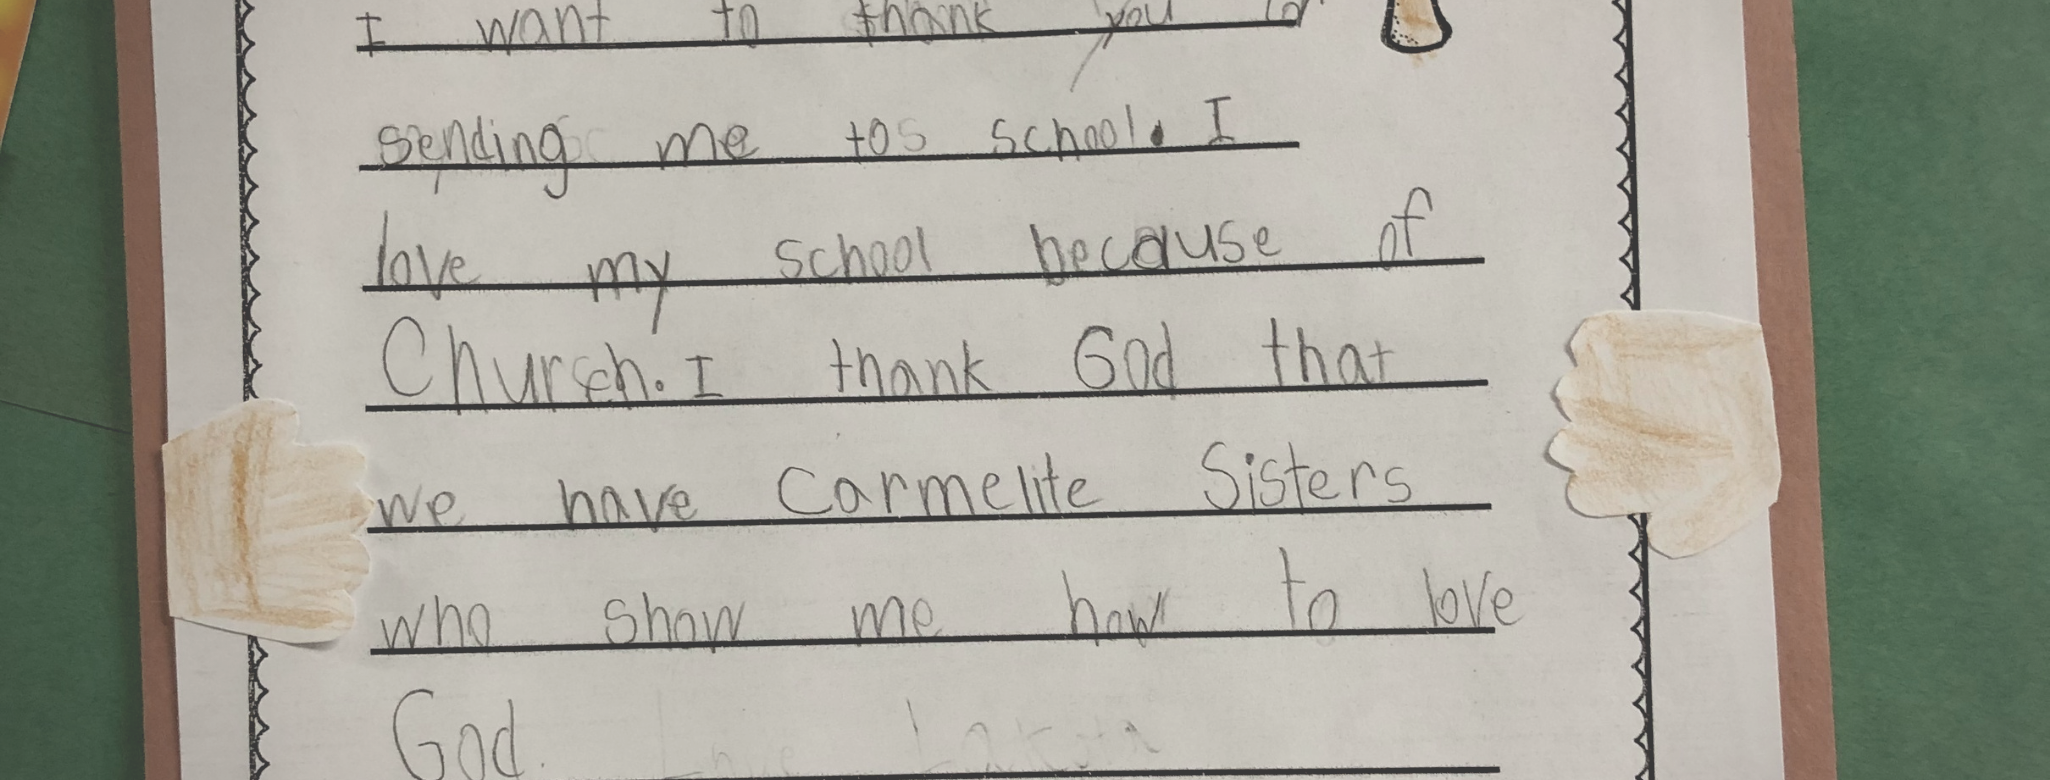 I want to thank you for
sending me to school. I
love my school because of
Church. I thank God that
we have Carmelite Sisters
who show me how to love
God.